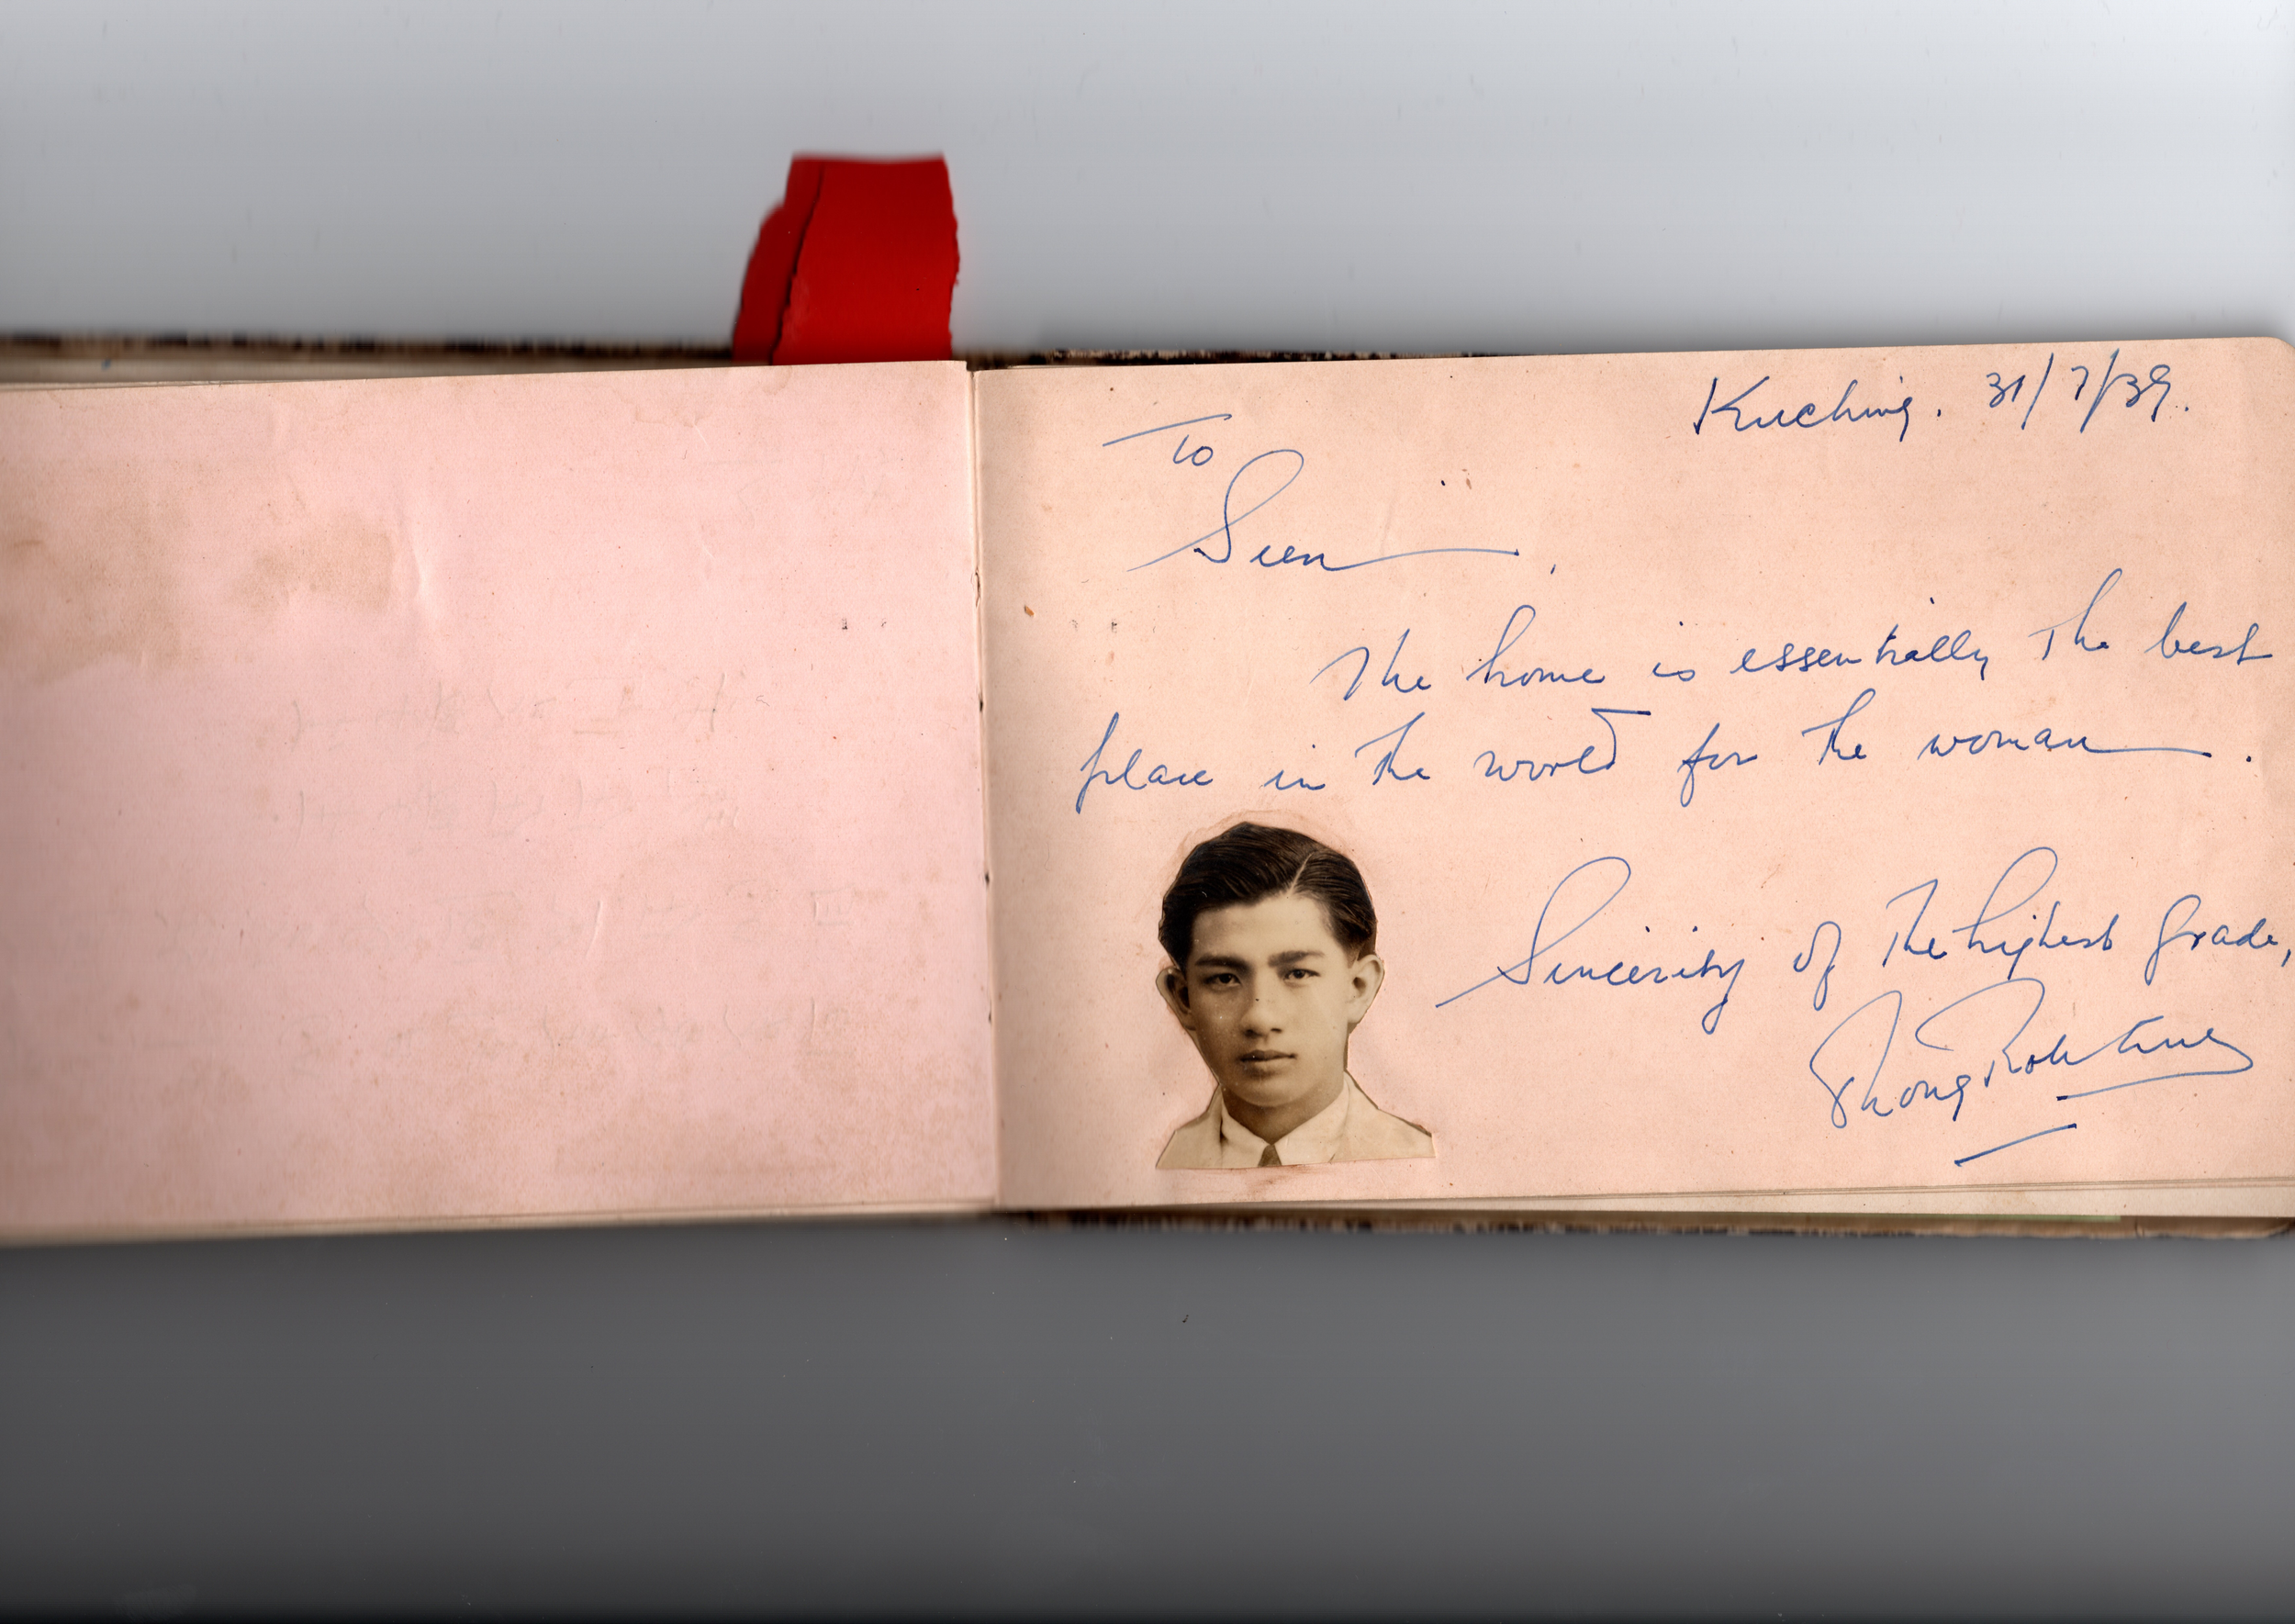 Kuching. 31/7/39.
To
Sien,
The home is essentially the best
place in the world for the woman.
Sincerity of the highest grade,